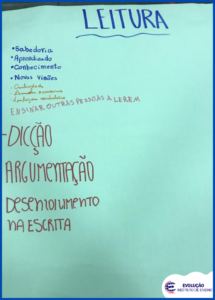 LEITURA
• Sabedoria
• Aprendizado
• Conhecimento
• Novas visões
ENSINAR OUTRAS PESSOAS A LEREM
- DICÇÃO
ARGUMENTAÇÃO
DESENVOLVIMENTO
NA ESCRITA
EVOLUÇÃO